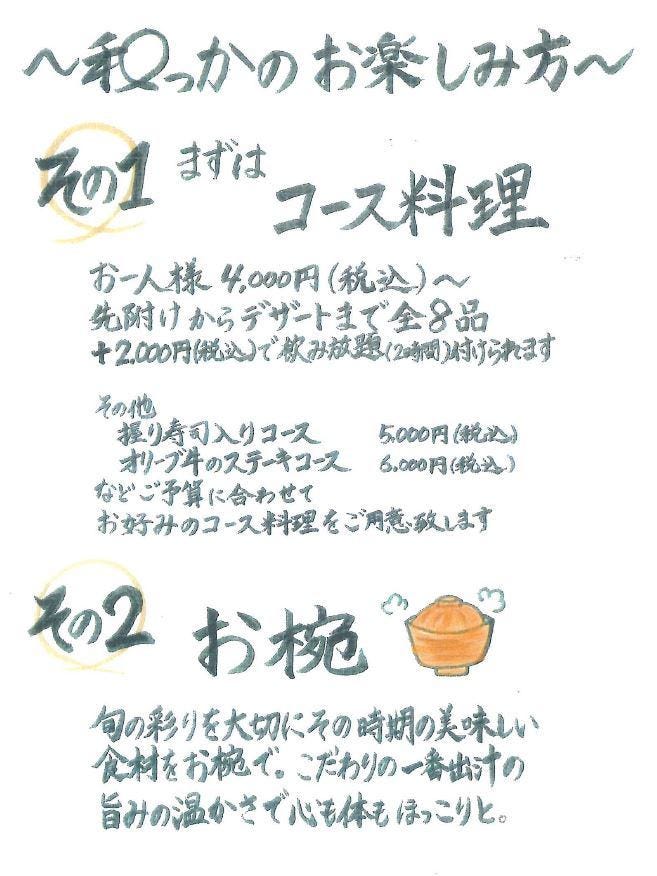 ～和っかのお楽しみ方～
その1 まずは
コース料理
お一人様 4,000円(税込)～
先附けからデザートまで全8品
+2,000円(税込)で飲み放題(2時間)付けられます
その他
握り寿司入りコース 5,000円(税込)
オリーブ牛のステーキコース 6,000円(税込)
などご予算に合わせて
お好みのコース料理をご用意致します
その2 お椀
旬の彩りを大切にその時期の美味しい
食材をお椀で。こだわりの一番出汁の
旨みの温かさで心も体もほっこりと。